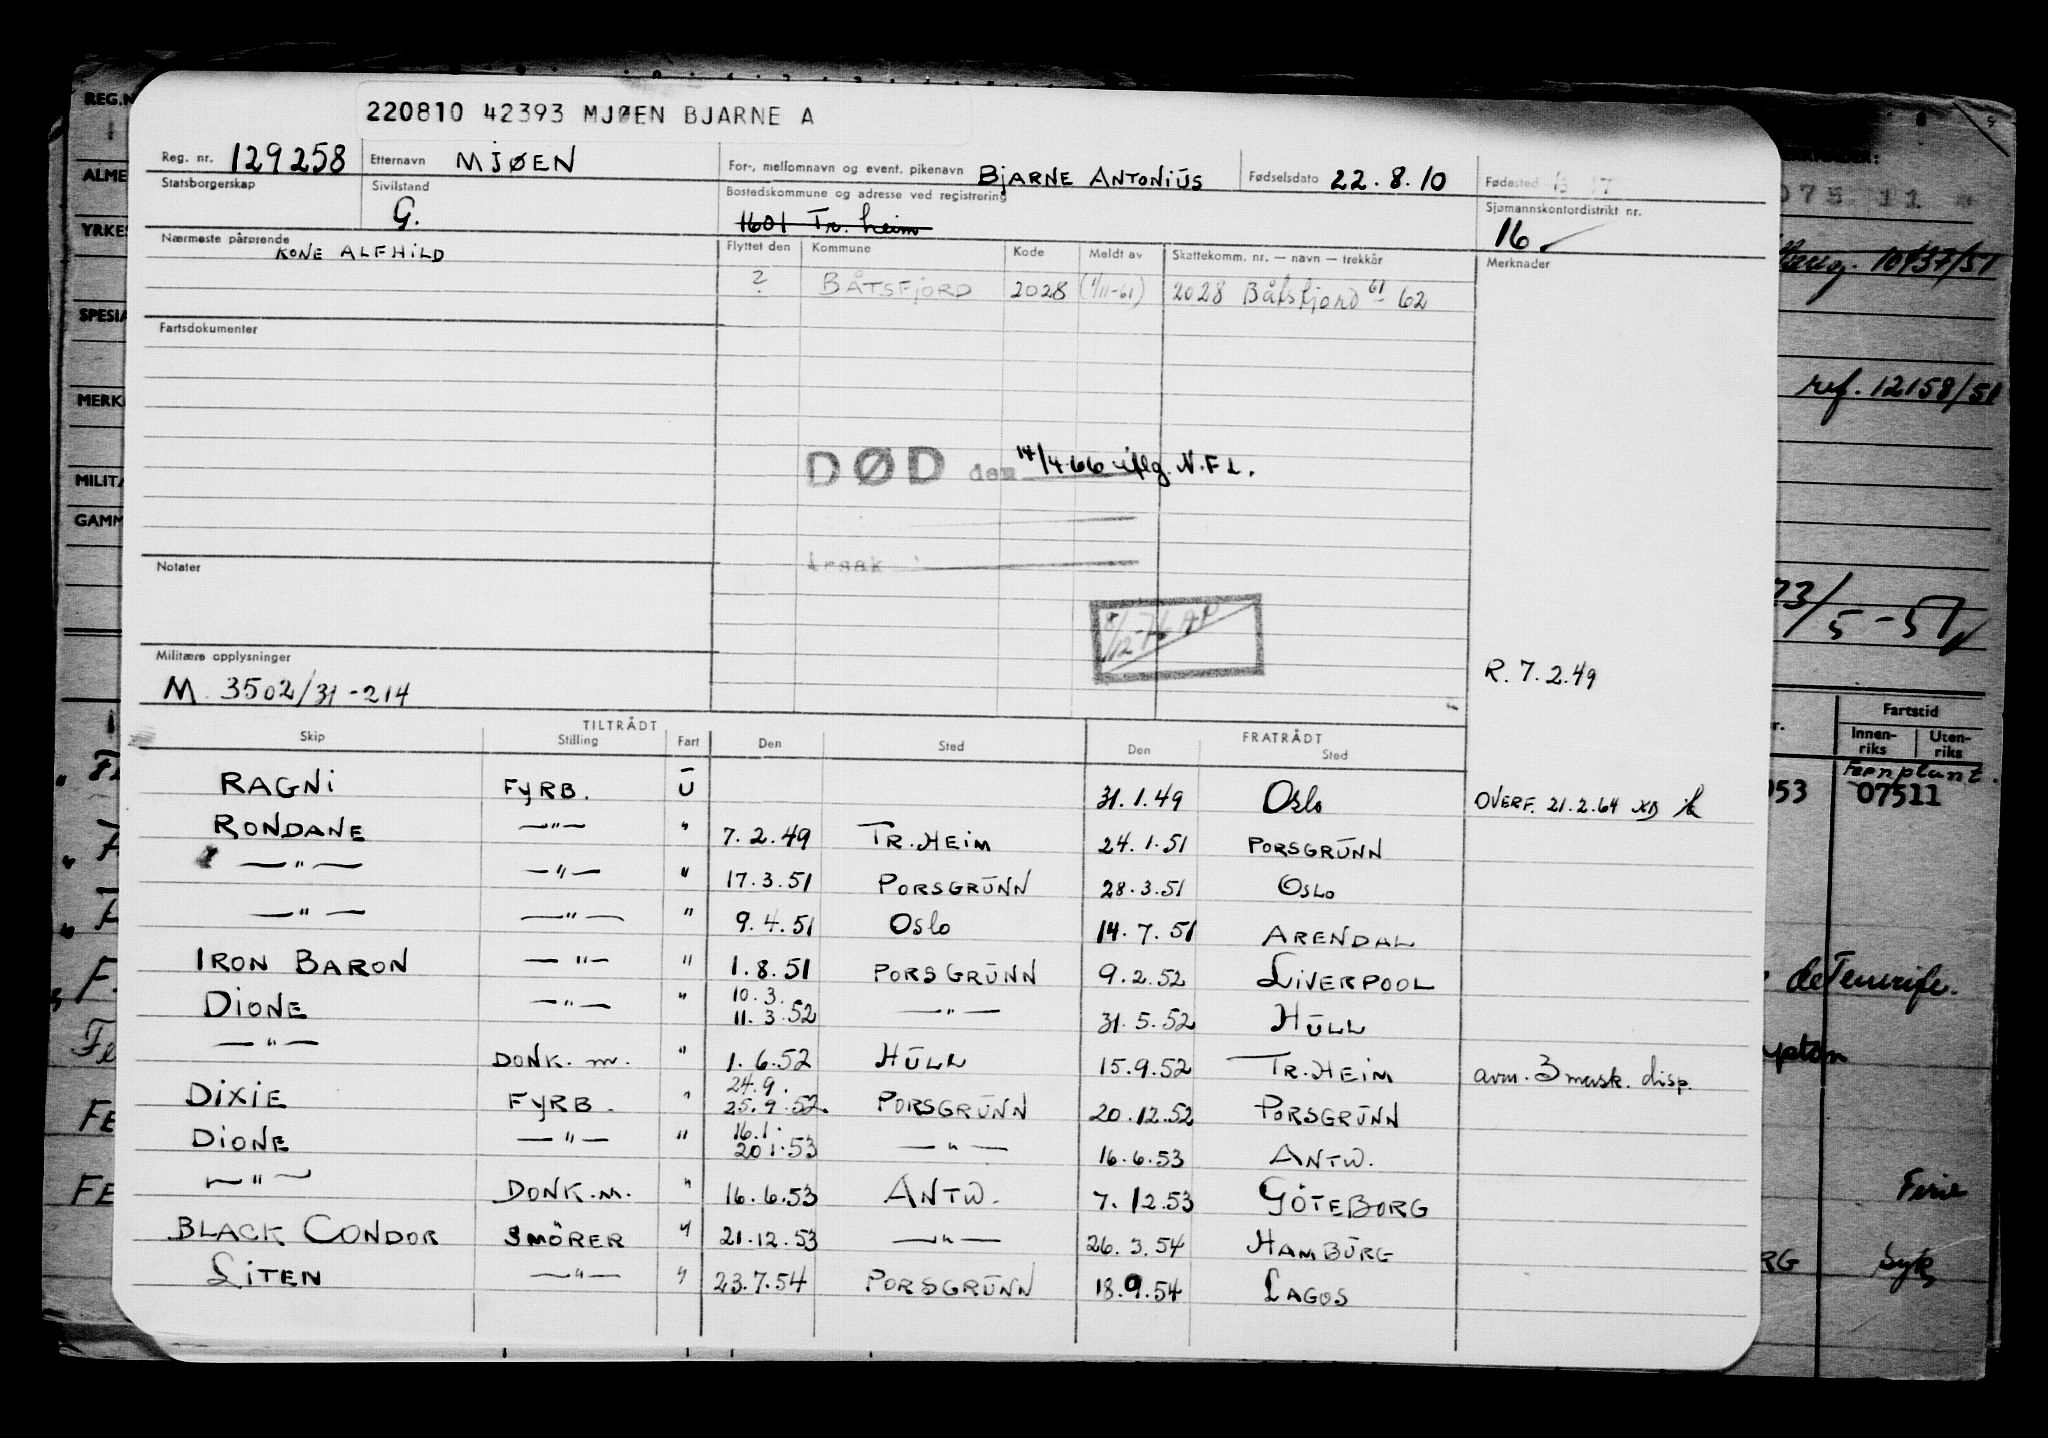 220810 42393 MJØEN BJARNE A
Reg. nr. 129258 Etternavn MJØEN For-, mellomnavn og event. pikenavn BJARNE ANTONIUS Fødselsdato 22.8.10 Fødested
Statsborgerskap Sivilstand G. Bostedskommune og adresse ved registrering 1601 Tr. heim Sjømannskontordistrikt nr. 16
Nærmeste pårørende KONE ALFHILD Flyttet den Kommune Kode Meldt av Skattekomm. nr. — navn — trekkår Merknader
? BÅTSFJORD 2028 (1/11-61) 2028 Båtsfjord 61 - 62
Fartsdokumenter
DØD den 14/4.66 iflg. N.F.L.
Årsak
Notater
Militære opplysninger
M. 3502/31-214
R. 7.2.49
TILTRÅDT FRATRÅDT
Skip Stilling Fart Den Sted Den Sted
RAGNI FYRB. U 31.1.49 Oslo OVERF. 21.2.64
RONDANE —"— " 7.2.49 TR.HEIM 24.1.51 PORSGRUNN
—"— —"— " 17.3.51 PORSGRUNN 28.3.51 OSLO
—"— —"— " 9.4.51 OSLO 14.7.51 ARENDAL
IRON BARON —"— " 1.8.51 PORSGRUNN 9.2.52 LIVERPOOL
DIONE —"— " 10.3. 11.3.52 —"— 31.5.52 HULL
—"— DONK.m. " 1.6.52 HULL 15.9.52 TR.HEIM avm. 3 mask. disp.
DIXIE FYRB. " 24.9. 25.9.52. PORSGRUNN 20.12.52 PORSGRUNN
DIONE —"— " 16.1. 20.1.53 —"— 16.6.53 ANTW.
—"— DONK.M. " 16.6.53 ANTW. 7.12.53 GÖTEBORG
BLACK CONDOR SMÖRER " 21.12.53 —"— 26.3.54 HAMBURG
LITEN —"— " 23.7.54 PORSGRUNN 18.9.54 LAGOS
REG.N
ALME
YRKES
SPESIA
MERK
MILITÆ
GAMM
075 11
10137/51
ref. 12158/51
23/5-51
Fartstid
Innen-riks Uten-riks
Fernplant.
053 07511
de Tenerife.
Ferie
RG Syk